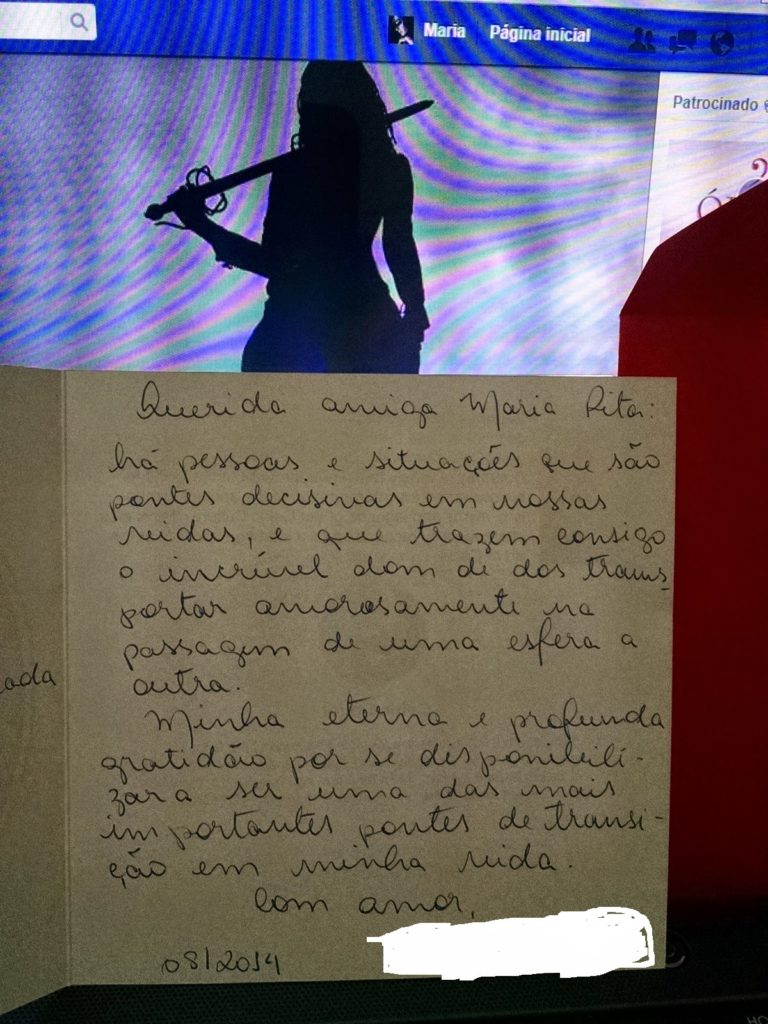 Maria Página inicial
Patrocinado
Querida amiga Maria Rita:
há pessoas e situações que são
pontes decisivas em nossas
vidas, e que trazem consigo
o incrível dom de dos trans-
portar amorosamente na
passagem de uma esfera a
outra.
Minha eterna e profunda
gratidão por se disponibili-
zar a ser uma das mais
importantes pontes de transi-
ção em minha vida.
Com amor,
08/2014